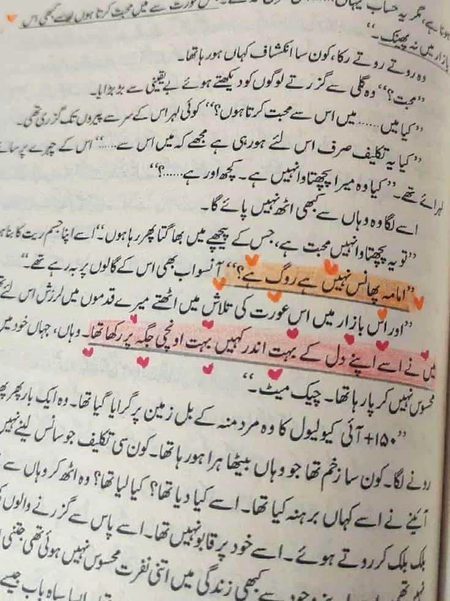 ہوتا ہے، مگر یہ حساب یہاں
عورت سے میں محبت کرتا ہوں اسے کبھی اس
بازار میں نہ پھینک۔“
وہ روتے روتے رکا، کون سا انکشاف کہاں ہو رہا تھا۔
”محبت؟“ وہ گلی سے گزرتے لوگوں کو دیکھتے ہوئے بے یقینی سے بڑبڑایا۔
”کیا میں...... میں اس سے محبت کرتا ہوں؟“ کوئی لہر اس کے سر سے پیروں تک گزری تھی۔
”کیا یہ تکلیف صرف اس لئے ہو رہی ہے مجھے کہ میں اس سے......“ اس کے چہرے پر سائے
لہرائے تھے۔ ”کیا وہ میرا پچھتاوا نہیں ہے۔ کچھ اور ہے......؟“
اسے لگا وہ وہاں سے کبھی اٹھ نہیں پائے گا۔
”تو یہ پچھتاوا نہیں محبت ہے، جس کے پیچھے میں بھاگتا پھر رہا ہوں۔“ اسے اپنا جسم ریت کا بنا
”امامہ پھانس نہیں ہے روگ ہے؟“ آنسو اب بھی اس کے گالوں پر بہہ رہے تھے۔
”اور اس بازار میں اس عورت کی تلاش میں اٹھتے میرے قدموں میں لرزش اس لئے
میں نے اسے اپنے دل کے بہت اندر کہیں بہت اونچی جگہ پر رکھا تھا۔ وہاں، جہاں خود میں
محسوس نہیں کر پا رہا تھا۔ چیک میٹ۔“
”۱۵۰+ آئی کیو لیول کا وہ مرد منہ کے بل زمین پر گرایا گیا تھا۔ وہ ایک بار پھر پھ
رونے لگا۔ کون سا زخم تھا جو وہاں بیٹھا ہرا ہو رہا تھا۔ کون سی تکلیف جو سانس لینے نہیں
آئینے نے اسے کہاں برہنہ کیا تھا۔ اسے کیا دیا تھا؟ کیا لیا تھا؟ وہ اٹھ کر وہاں سے
بلک بلک کر روتے ہوئے۔ اسے خود پر قابو نہیں تھا۔ اسے پاس سے گزرنے والوں کی
وجود سے کبھی زندگی میں اتنی نفرت محسوس نہیں ہوئی تھی جتنی
سیاہ باب جسے